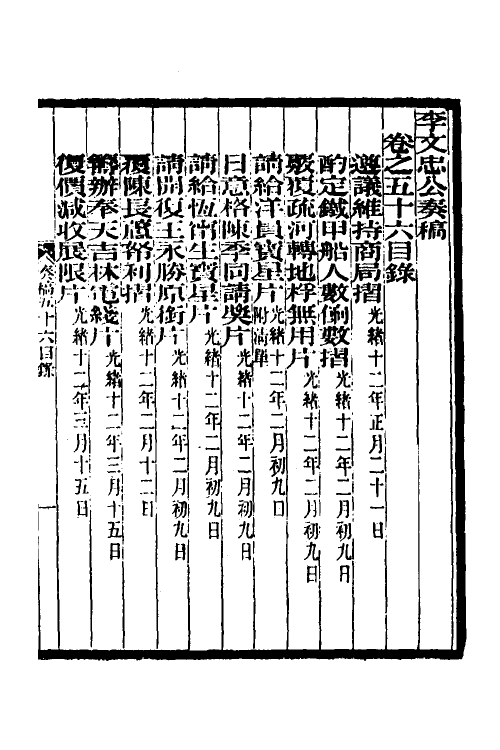 李文忠公奏稿
卷之五十六目錄
遵議維持商局摺 光緒十二年正月二十一日
酌定鐵甲船人數餉數摺 光緒十二年二月初九日
駁覆疏河轉地桴無用片 光緒十二年二月初九日
請給洋員寶星片 附清單 光緒十二年二月初九日
日意格陳季同請獎片 光緒十二年二月初九日
請給恆甯生寶星片 光緒十二年二月初九日
請開復王永勝原銜片 光緒十二年二月初九日
覆陳長蘆帑利摺 光緒十二年二月十二日
辦奉天吉林電綫片 光緒十二年三月十五日
復價減收展限片 光緒十二年三月十五日
奏稿五十六目錄
一